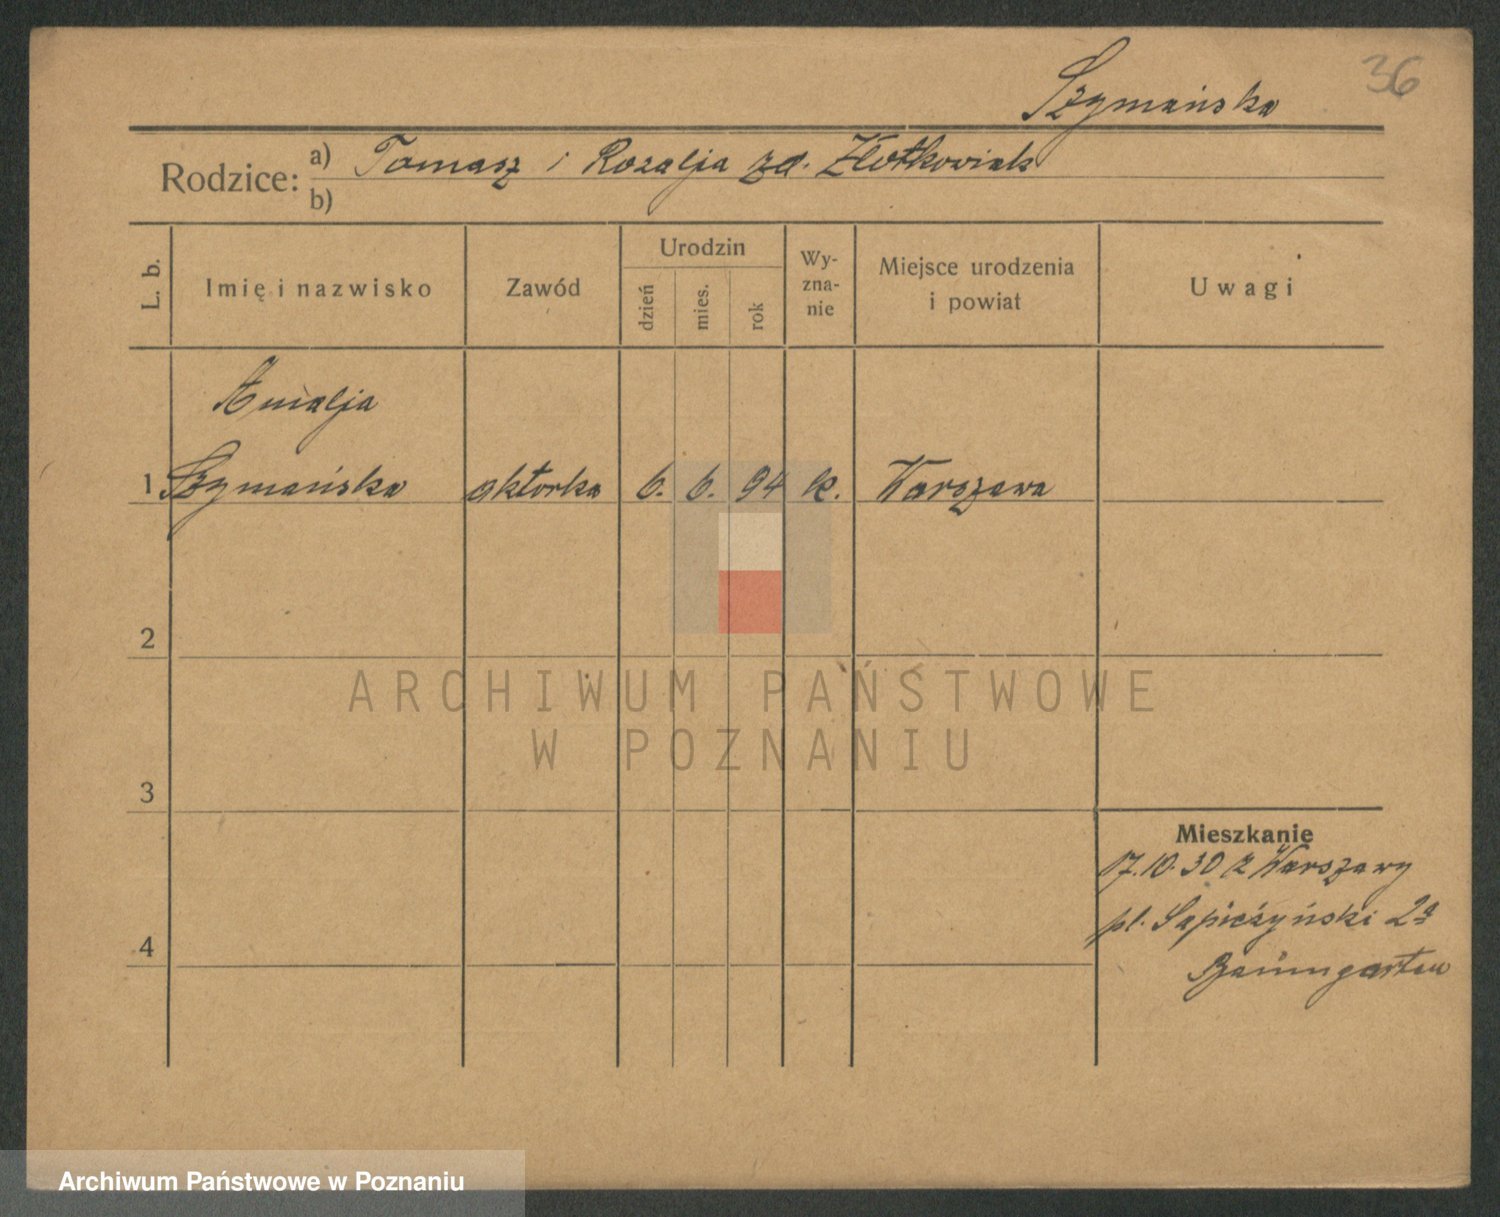 Szymańska
36
Rodzice: a) Tomasz i Rozalja zd. Złotkowiak
b)
L. b. Imię i nazwisko Zawód Urodzin dzień mies. rok Wy-zna-nie Miejsce urodzenia i powiat Uwagi
Amalja
1 Szymańska aktorka 6. 6. 94 k. Warszawa
2
ARCHIWUM PAŃSTWOWE
W POZNANIU
3
Mieszkanie
17.10.30 z Warszawy
pl. Sapieżyński 2a
4
Baumgarten
Archiwum Państwowe w Poznaniu